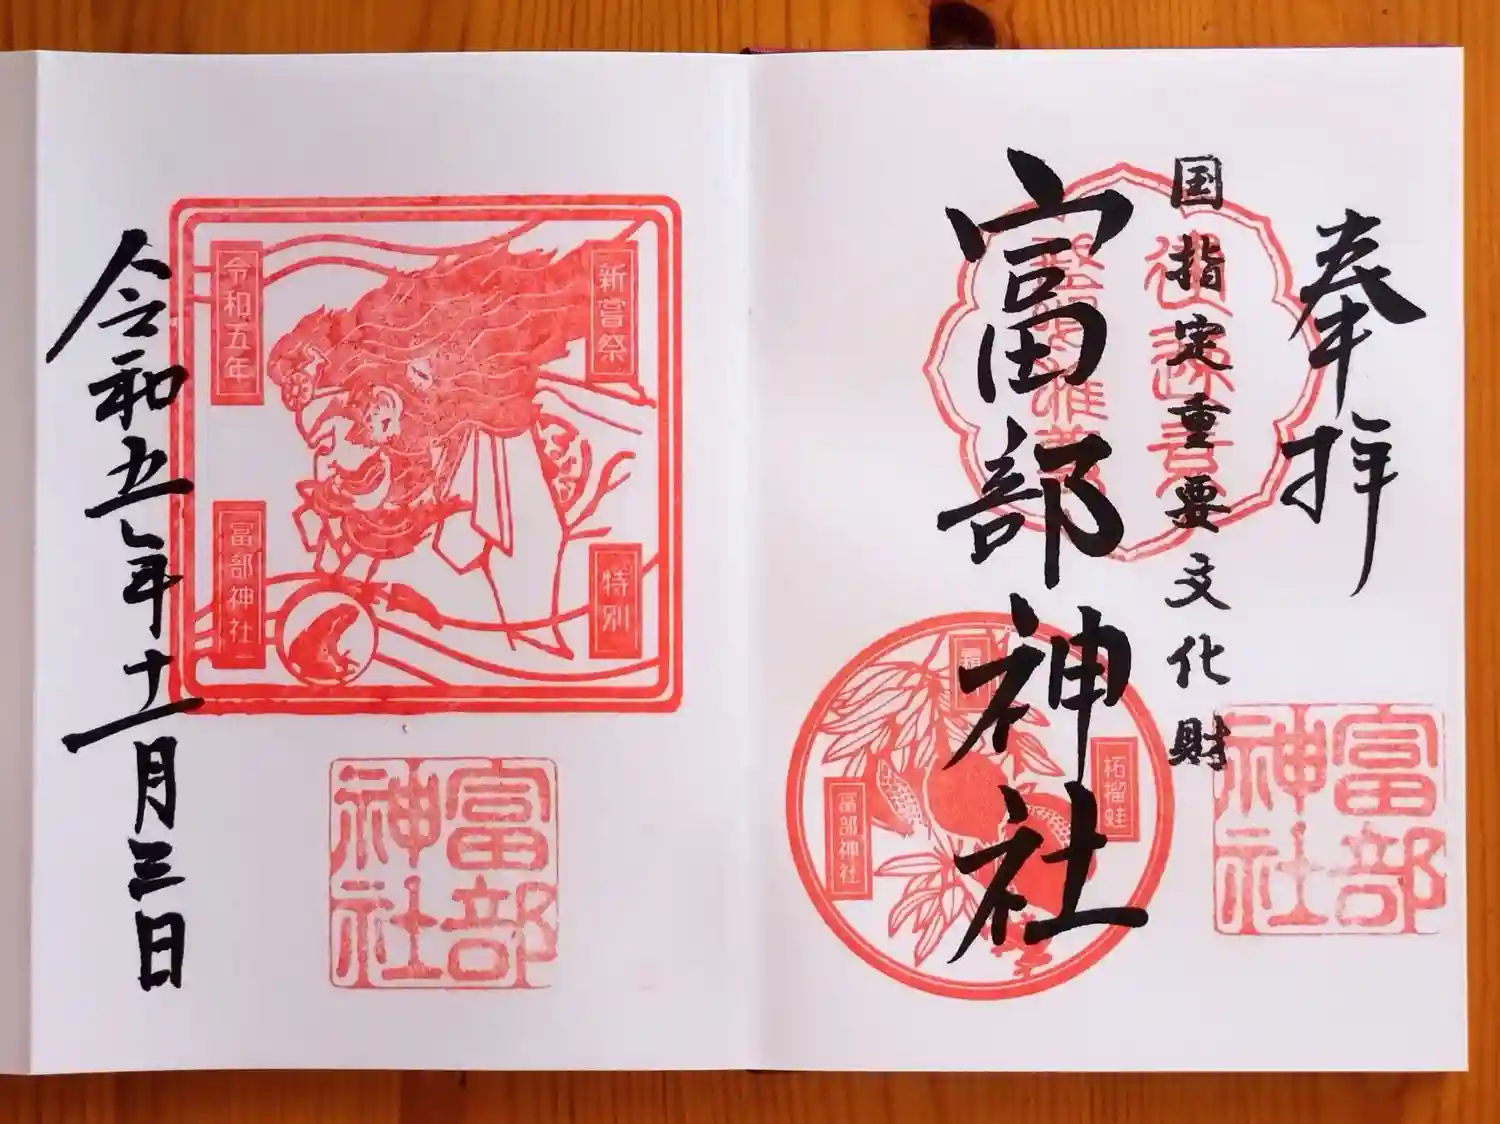 奉拝
国指定重要文化財
富部神社
富部神社
柘榴蛙
富部神社
新嘗祭
特別
令和五年
富部神社
富部神社
令和五年十一月三日